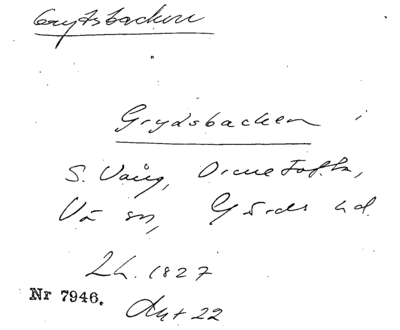 Grytsbacken
Grydsbacken i
S. Vång, Ormetofta,
Vä sn, Gärds hd.
Lh. 1827
Nr 7946.
Akt 22